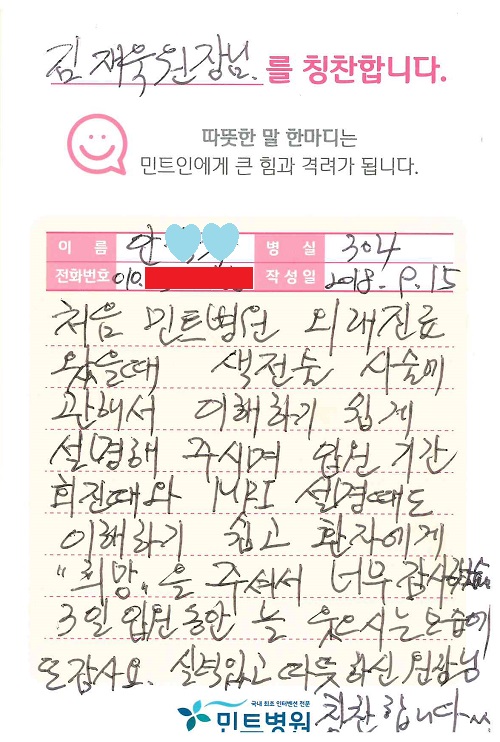 김재욱원장님.를 칭찬합니다.
따뜻한 말 한마디는
민트인에게 큰 힘과 격려가 됩니다.
이 름 안 병 실 304
전화번호 010. 작성일 2018. 9. 15
처음 민트병원 외래진료
왔을때 색전술 시술에
관해서 이해하기 쉽게
설명해 주시며 입원 기간
회진때와 MRI 설명때도
이해하기 쉽고 환자에게
"희망"을 주셔서 너무 감사했습
3일 입원동안 늘 웃으시는모습에
또감사요. 실력있고 따뜻하신 원장님
칭찬합니다~^^
국내 최초 인터벤션 전문
민트병원